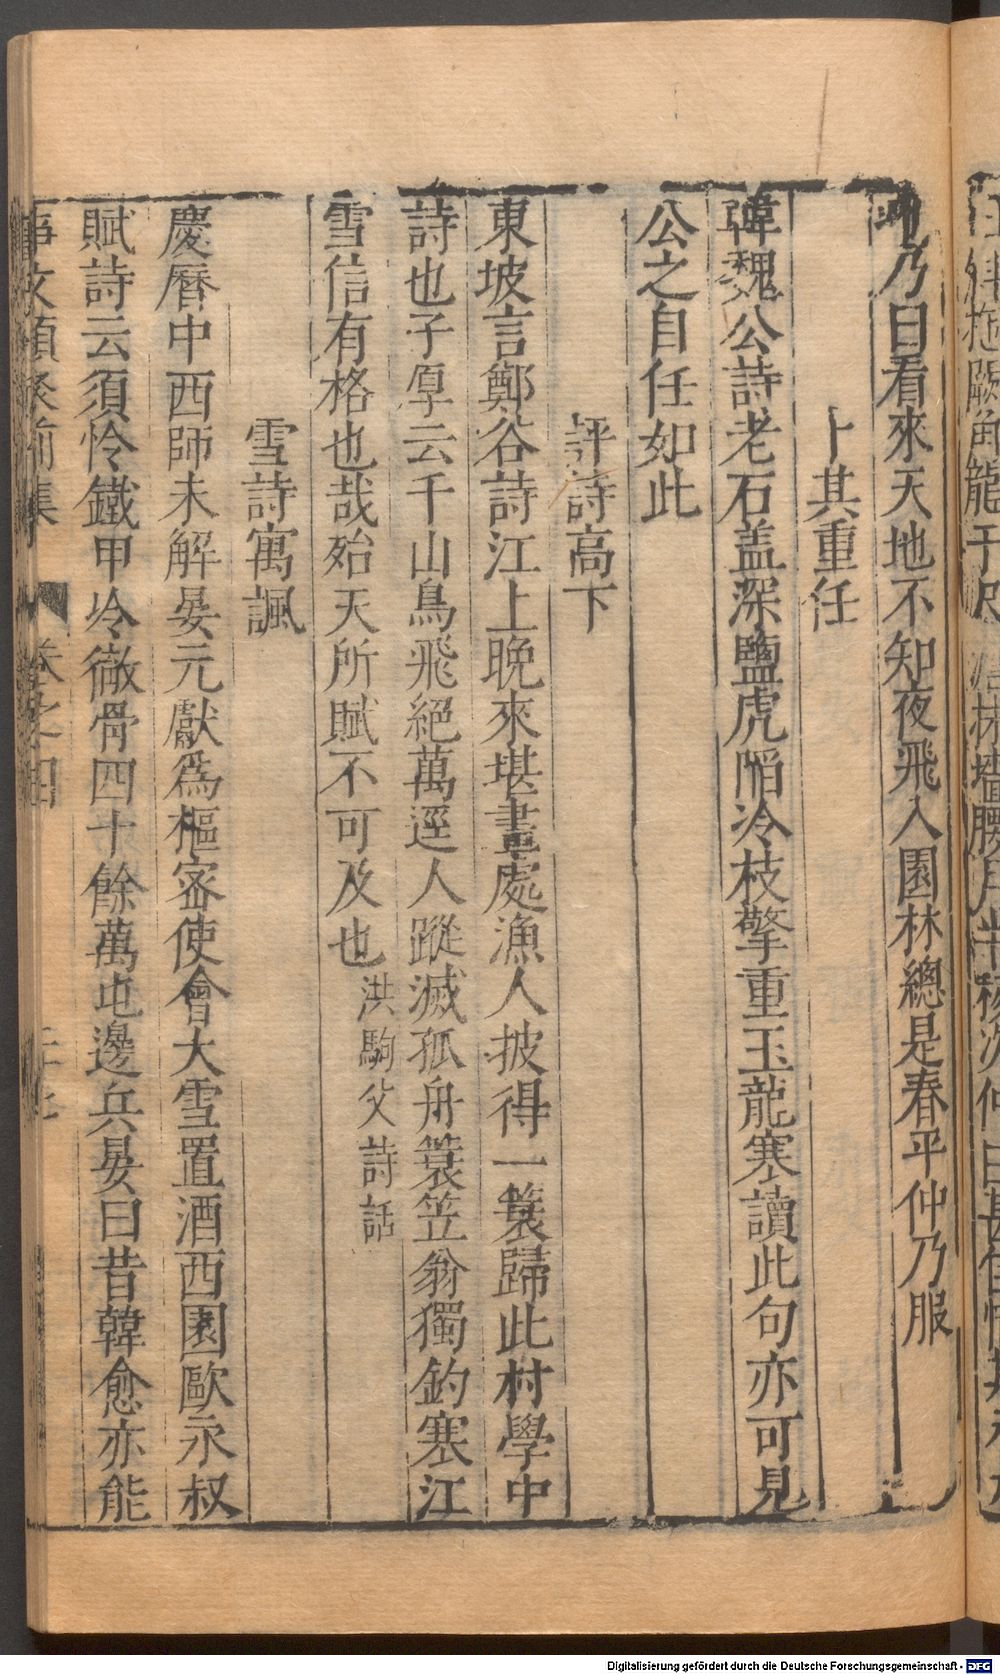 乃曰看來天地不知夜飛入園林總是春平仲乃服
卜其重任
韓魏公詩老石盖深鹽虎陷冷枝擎重玉龍寒讀此句亦可見
公之自任如此
評詩高下
東坡言鄭谷詩江上晚來堪畫處漁人披得一簑歸此村學中
詩也子厚云千山鳥飛絕萬逕人蹤滅孤舟簑笠翁獨釣寒江
雪信有格也哉殆天所賦不可及也洪駒父詩話
雪詩寓諷
慶曆中西師未解晏元獻爲樞密使會大雪置酒西園歐永叔
賦詩云須怜鐵甲冷徹骨四十餘萬屯邊兵晏曰昔韓愈亦能
事文類聚前集 卷之四
Digitalisierung gefördert durch die Deutsche Forschungsgemeinschaft - DFG